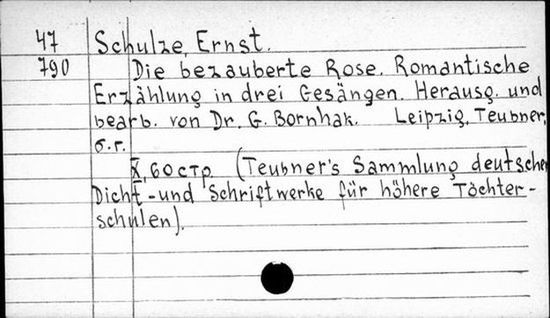 47 Schulze, Ernst.
790 Die bezauberte Rose. Romantische
Erzählung in drei Gesängen. Herausg. und
bearb. von Dr. G. Bornhak. Leipzig, Teubner,
б.г.
X, 60 стр. (Teubner's Sammlung deutscher
Dicht- und Schriftwerke für höhere Töchter-
schulen).